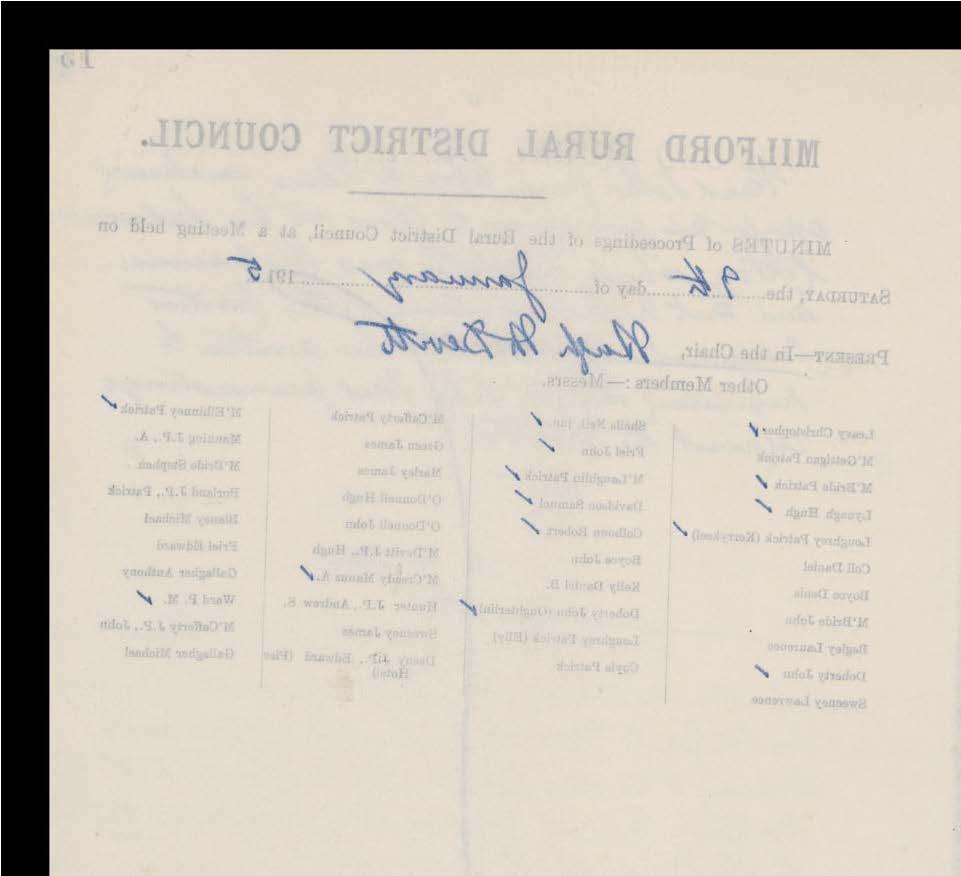 15
MILFORD RURAL DISTRICT COUNCIL.
MINUTES of Proceedings of the Rural District Council, at a Meeting held on
SATURDAY, the 9th day of January 1915
PRESENT—In the Chair, Hugh McDevitt
Other Members:—Messrs.
Leavy Christopher
M'Gettigan Patrick
M'Bride Patrick
Lynagh Hugh
Loughrey Patrick (Kerrykeel)
Coll Daniel
Boyce Denis
M'Bride John
Bagley Laurence
Doherty John
Sweeney Lawrence
Sheils Neil, jun.
Friel John
M'Laughlin Patrick
Davidson Samuel
Colhoun Robert
Boyce John
Kelly Daniel B.
Doherty John (Oughterlin)
Loughrey Patrick (Elly)
Coyle Patrick
M'Cafferty Patrick
Green James
Marley James
O'Donnell Hugh
O'Donnell John
M'Devitt J.P., Hugh
M'Cready Manus A.
Hunter J.P., Andrew S.
Sweeney James
Deeny J.P., Edward (Pier
Hotel)
M'Elhinney Patrick
Manning J.P., A.
M'Bride Stephen
Borland J.P., Patrick
Blaney Michael
Friel Edward
Gallagher Anthony
Ward P. M.
M'Cafferty J.P., John
Gallagher Michael